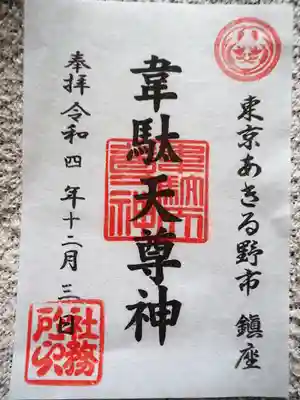 東京あきる野市 鎮座
韋駄天尊神
奉拝 令和四年十二月三日
社務所印